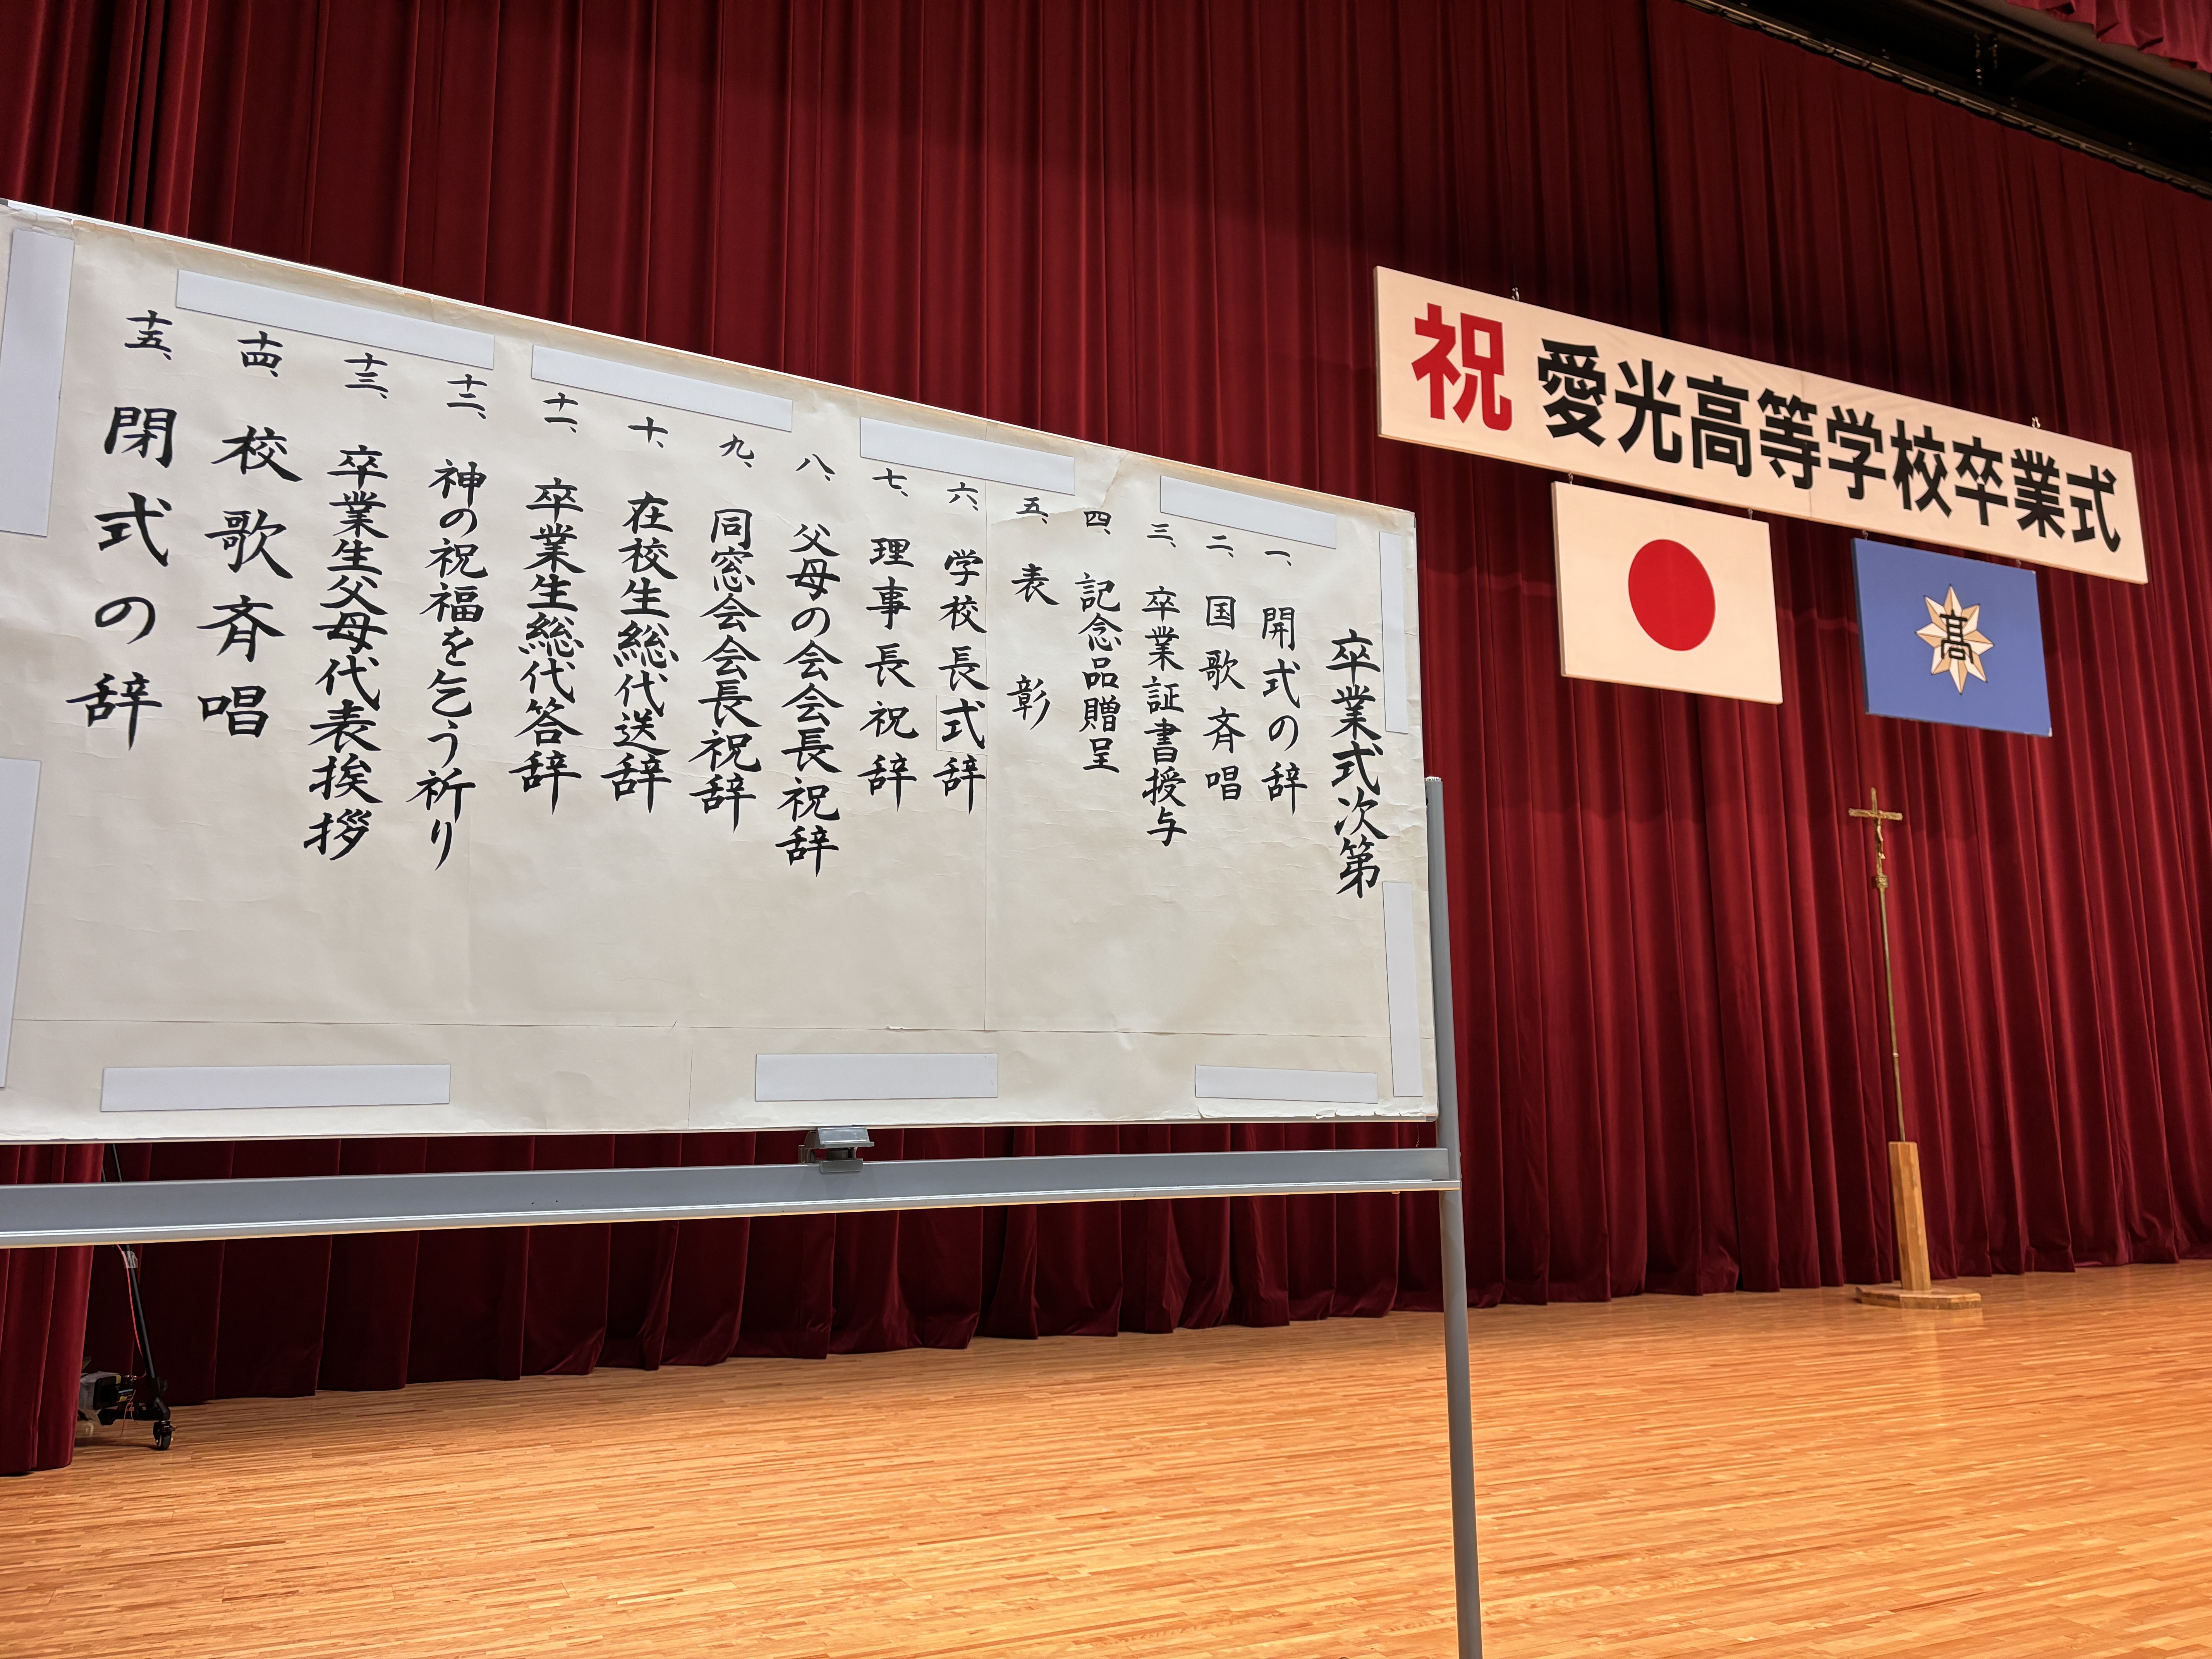 卒業式次第
一、開式の辞
二、国歌斉唱
三、卒業証書授与
四、記念品贈呈
五、表彰
六、学校長式辞
七、理事長祝辞
八、父母の会会長祝辞
九、同窓会会長祝辞
十、在校生総代送辞
十一、卒業生総代答辞
十二、神の祝福を乞う祈り
十三、卒業生父母代表挨拶
十四、校歌斉唱
十五、閉式の辞
祝 愛光高等学校卒業式
髙